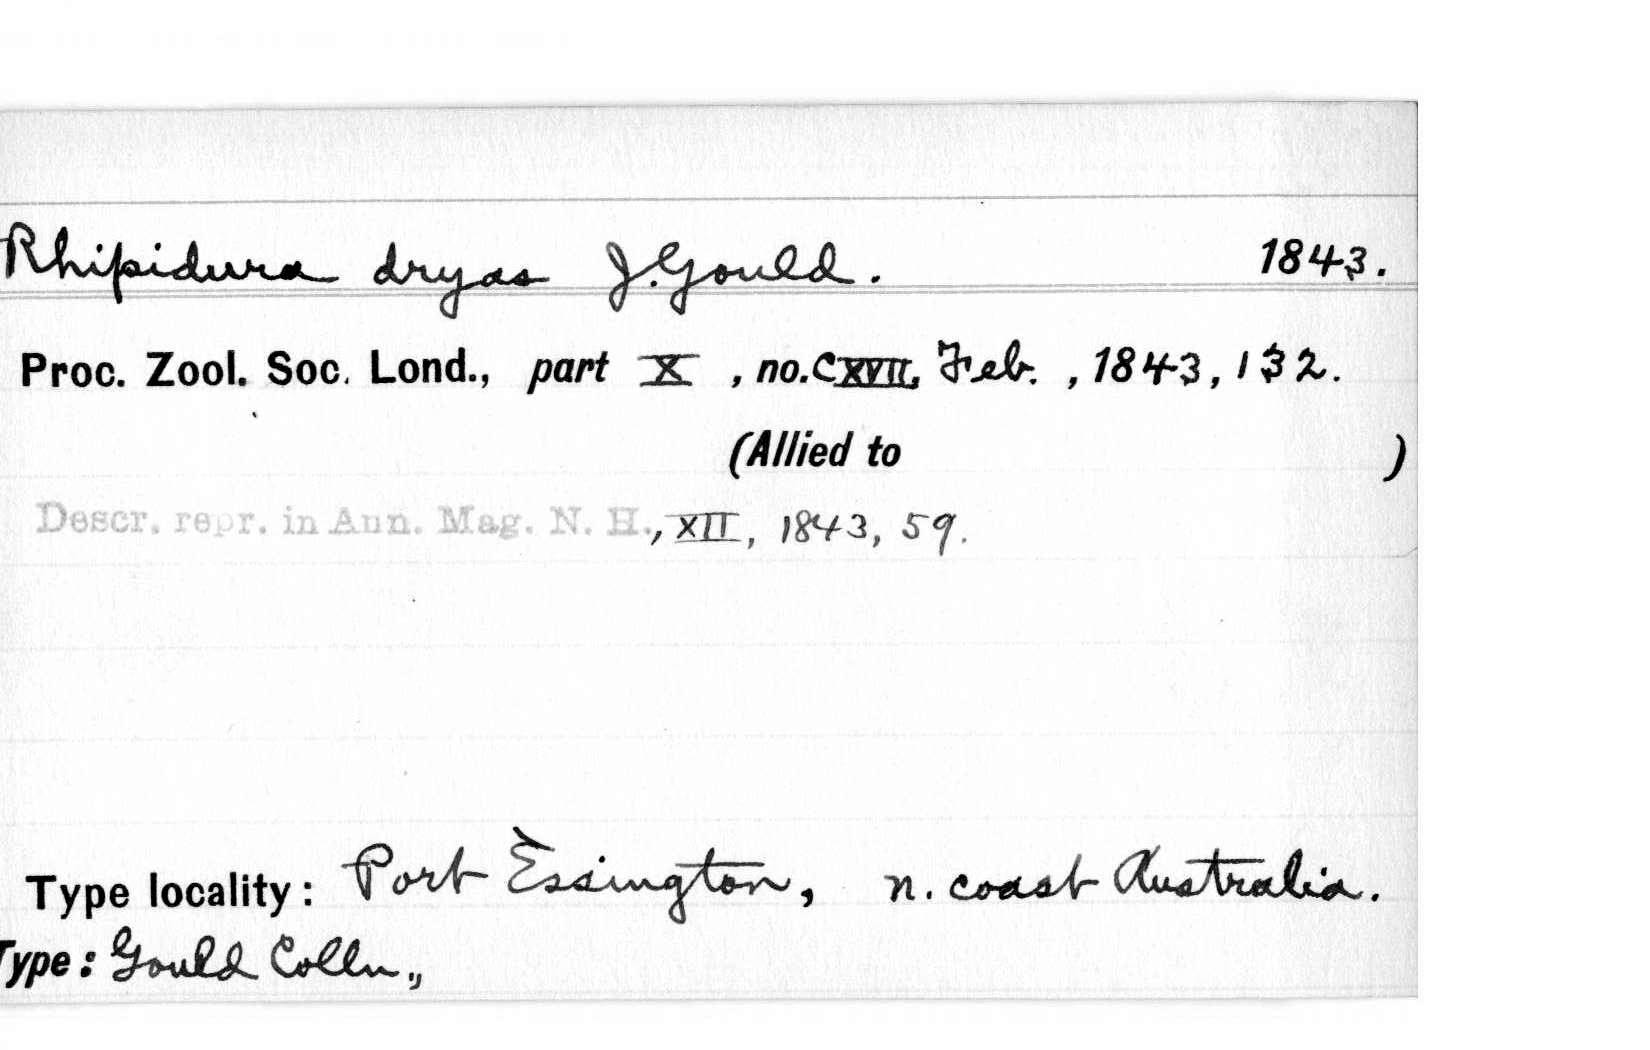 Rhipidura dryas J. Gould. 1843.
Proc. Zool. Soc. Lond., part X, no. CXVII, Feb., 1843, 132.
(Allied to )
Descr. repr. in Ann. Mag. N. H., XII, 1843, 59.
Type locality: Port Essington, n. coast Australia.
Type: Gould Colln.,